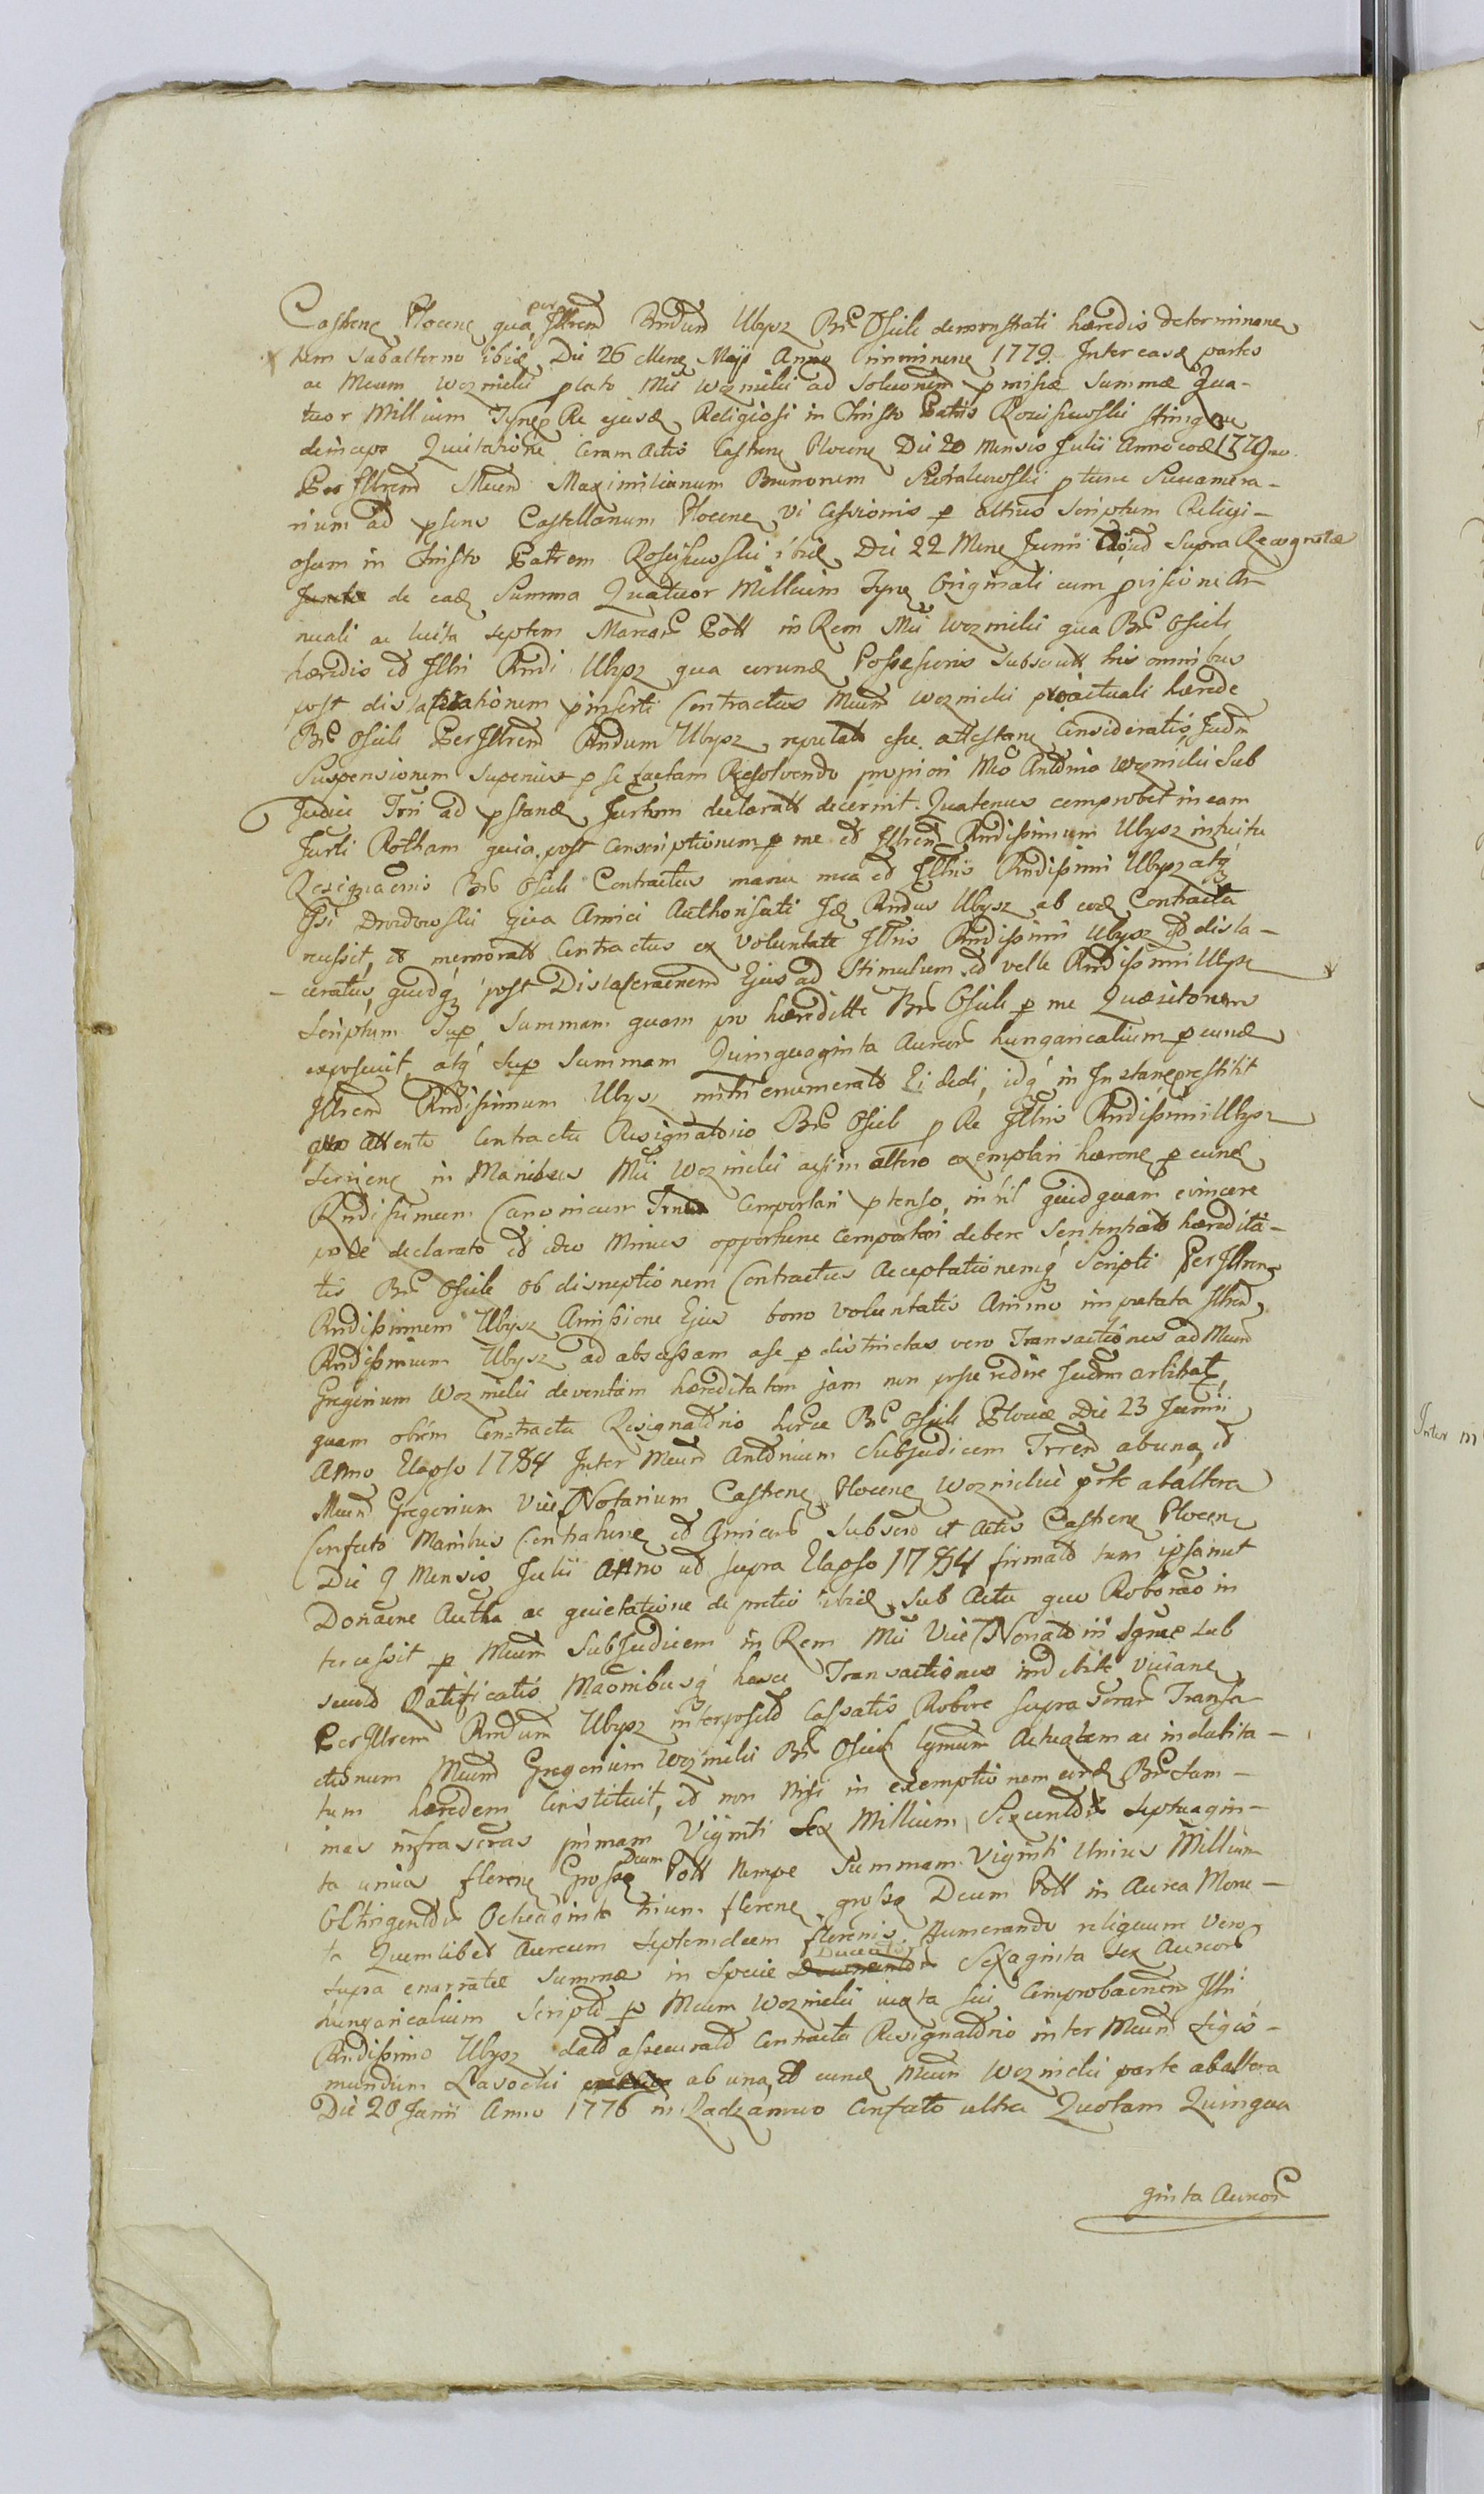 Castren̄ Plocen̄ qua per Jllrem̄ Rndum̄ Ubysz Br̄ Osiek demonstrati hæredis determinan̄
tem subalterno ibid. Die 26 Mens̄ Maji Anno imminen̄ 1779. Inter easd. partes
ac Mcum Woznicki p̄lato Mci Woznicki ad Solvonem̄ p̄missæ Summæ Qua-
tuor Millium Tynf. Re ejusd. Religiosi in Christo Patris Rosciszewski
deincepe Quietatione Coram Actis Castren̄ Plocen̄ Die 20 Mensis Julii Anno eod. 1779no
Per Jllrem̄ Mcum̄ Maximilianum Brunonem p̄ tunc Succamera-
rium ad p̄sens Castellanum Plocen̄ vi Cessionis p̄ altius Scriptum Religi-
osum in Christo Patrem Rosciszewski ibid. Die 22 Mens̄ Junii Supra Recognitæ
de ead. Summa Quatuor Millium Tynf. Originali cum p̄visione An-
nuali ac luita septem Marcar̄ Poll in Rem Mci Woznicki qua Br̄ Osiek
hæredis et Jllri Rndi Ubysz qua eorund. Possessoris subsecutt his omnibus
post dislacerationem p̄inserti Contractus Mcum̄ Woznicki pro actuali hærede
Br̄ Osiek Per Jllrem̄ Rndum Ubysz reputato esse attestan̄ Consideratis, Judm̄
Suspensionem superius p̄ se factam Resolvendo propiori Mco Antonio Woznicki Sub
Judici Trri ad p̄stand. Jurtum declaratt decernit. Quatenus comprobet in eam
Jurti Rotham quia post Conscriptionem p̄ me et Jllrem̄ Rndissimum Ubysz intuitu
Resignaonis Br̄ Osiek Contractus manu mea et Jllris Rndissimi Ubysz atq
Gsi Drozdowski qua Amici Authorisati Jd. Rndus Ubysz ab eod. Contractu
recessit, et memoratt Contractus ex voluntate Jllris Rndissimi Ubysz ē disla-
ceratus, quidq post Dislaceraonem̄ Ejus ad stimulum et velle Rndissimi Ubysz
Scriptum Sup̄ Summam quam pro hæreditte Br̄ Osiek p̄ me Quæsitonem
exposuit, atq Sup̄ Summam Quinquaginta Aureor̄ hungaricalium p̄ eund.
Jllrem̄ Rndissimum Ubysz mihi enumerato Ei dedi, idq in Instan̄ prestitit
quo attento Contractu Resignatorio Br̄ Osiek p̄ Re Jllris Rndissimi Ubysz
servien̄ in Manibus Mci Woznicki ac si in altero exemplari hæren̄ p̄ eund.
Rndissimum Canonicum Comportari p̄tenso, nihil quidquam evincere
posse declarato et ideo Minus opportune Comportari debere Sententiato hæredita-
tis Br̄ Osiek ob disruptionem Contractus Acceptationemq Scripti Per Jllrem̄
Rndissimum Ubysz Amissione Ejus bono voluntatis Animo imputata Jllrem̄
Rndissimum Ubysz ad abscessam a se p̄ districtas vero Transactiones ad Mcum̄
Gregorium Woznicki deventam hæreditatem jam non posse redire Judm arbitrat,
quam obrem Contractu Resignatorio horce Br̄ Osiek Plociæ Die 23 Junii
Anno Elapso 1784 Inter Mcum̄ Antonium Subjudicem Trrem̄ ab una, et
Mcum̄ Gregorium Vice Notarium Castren̄ Plocen̄ Woznickie p̄rte ab altera
Confecto Manibus Contrahen̄ et Amicor̄ Subscro et Actis Castren̄ Plocen̄
Die 9 Mensis Julii Anno ut supra Elapso 1784 firmato tum ipsamet
Donaone Autha ac quietatione de pretio ibid. Sub Actu quo Roborao in
tercessit p̄ Mcum̄ Subjudicem in Rem Mci Vice Notarii Sgme sub
secuto Ratificatis Maonibusq hasce Transactiones indebite vician̄
Per Jllrem̄ Rndum̄ Ubysz interposito Cassatis Robore supra scrar̄ Transa-
ctionum Mcum̄ Gregorium Woznicki Br̄ Osiek lgmum̄ Actualem ac indubita-
tum hæredem Constituit, et non nisi in exemptionem eord. Br̄ Sum-
mas infrascras primam Viginti Sex Millium Sexcentor̄ Septuagin-
ta unius floren̄ Gross. Decem Poll Nempe Summam Viginti Unius Millium
Octingentor̄ Octuaginta trium floren̄ gross. Decem Poll in Aurea Mone-
ta Quemlibet Aureum septemdecem florenis Numerando reliquum vero
supra enarratæ Summæ in Specie Ducentor̄ Sexaginta sex Aureor̄
hungaricalium Scripto p̄ Mcum Woznicki juxta sui Comprobaonem̄ Jllri
Rndissimo Ubysz dato assecurato Contractu Resignatorio inter Mcum̄ Sigis-
mundum Lasocki ab una, et eund. Mcum̄ Woznicki parte ab altera
Die 20 Junii Anno 1776 in Radzanowo Confecto ultra Quotam Quinqua
ginta Aureor̄
Inter m